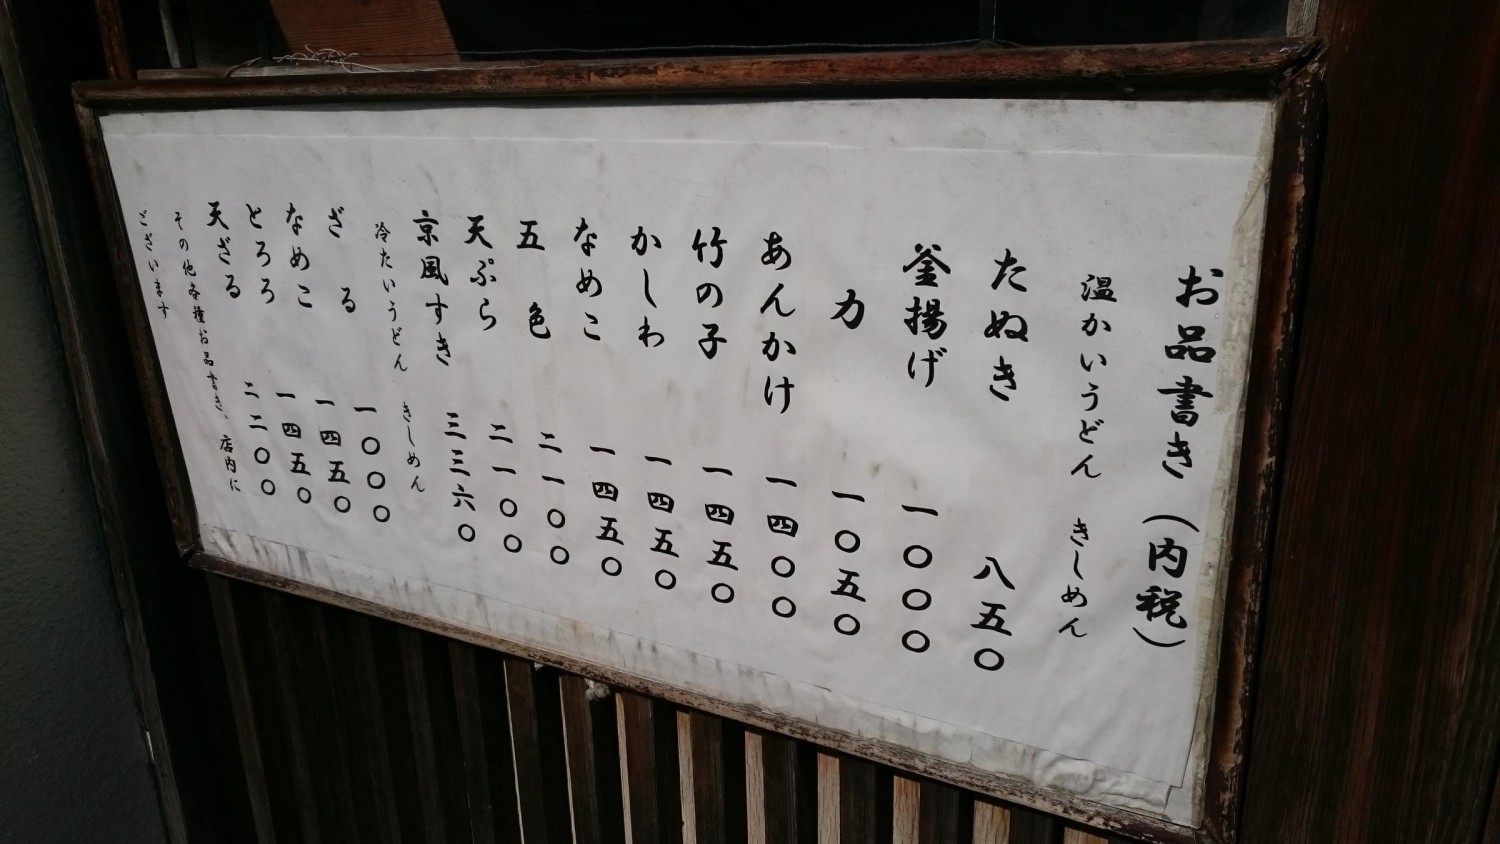 お品書き（内税）
温かいうどん　きしめん
たぬき　八五〇
釜揚げ　一〇〇〇
力　一〇五〇
あんかけ　一四〇〇
竹の子　一四五〇
かしわ　一四五〇
なめこ　一四五〇
五色　二一〇〇
天ぷら　二一〇〇
京風すき　三三六〇
冷たいうどん　きしめん
ざる　一〇〇〇
なめこ　一四五〇
とろろ　一四五〇
天ざる　二二〇〇
その他各種お品書き、店内に
ございます